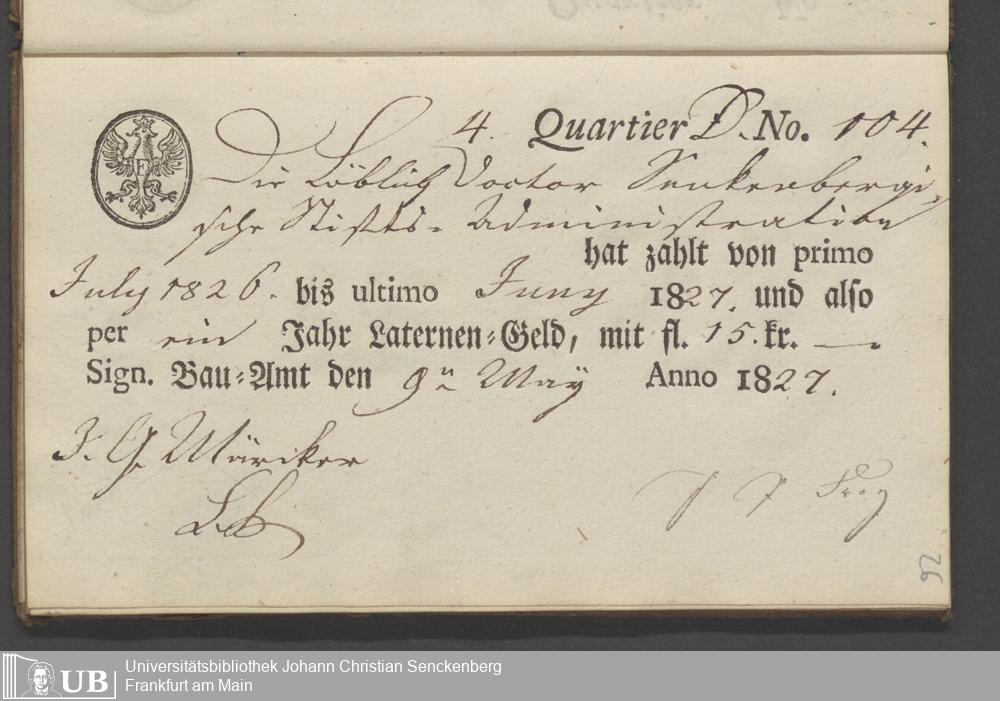 4. Quartier D. No. 104.
Die Löblich Doctor Senkenbergi-
sche Stifts-Administration
hat zahlt von primo
July 1826. bis ultimo Juny 1827. und also
per ein Jahr Laternen-Geld, mit fl. 15. kr. —.
Sign. Bau-Amt den 9n May Anno 1827.
J. G. Märcker
92
Universitätsbibliothek Johann Christian Senckenberg
Frankfurt am Main
UB